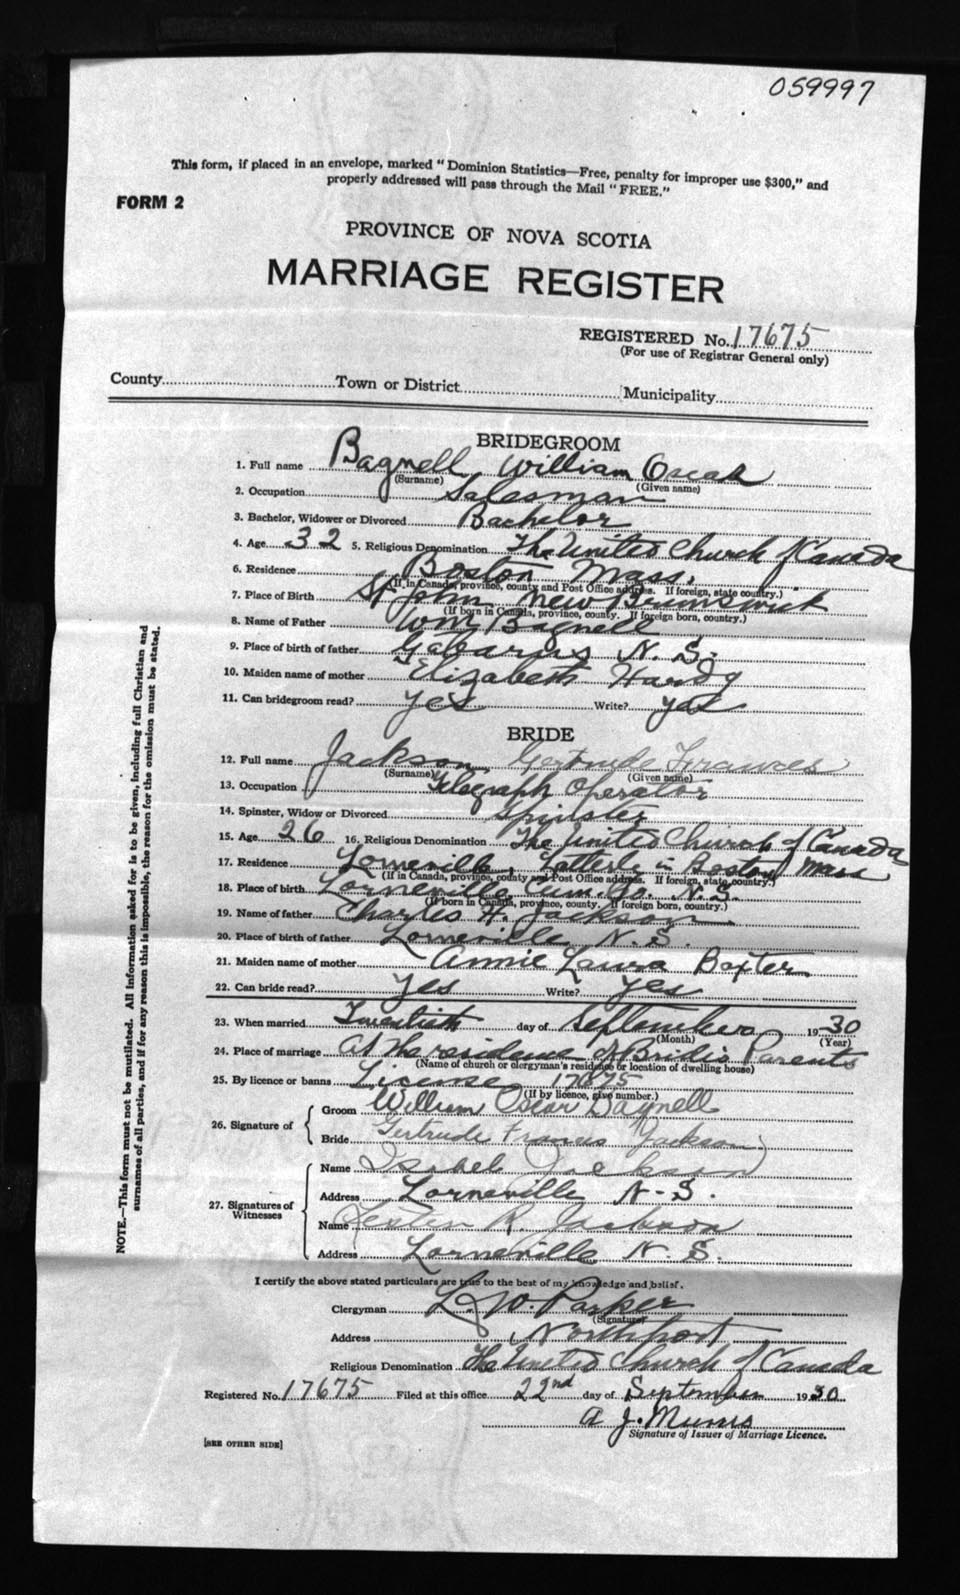 059997
This form, if placed in an envelope, marked "Dominion Statistics—Free, penalty for improper use $300," and
properly addressed will pass through the Mail "FREE."
FORM 2
PROVINCE OF NOVA SCOTIA
MARRIAGE REGISTER
REGISTERED No. 17675
(For use of Registrar General only)
County Town or District Municipality
BRIDEGROOM
1. Full name Bagnell William Oscar
(Surname) (Given name)
2. Occupation Salesman
3. Bachelor, Widower or Divorced Bachelor
4. Age 32 5. Religious Denomination The United Church of Canada
6. Residence Boston Mass.
(If in Canada, province, county and Post Office address. If foreign, state country.)
7. Place of Birth St John New Brunswick
(If born in Canada, province, county. If foreign born, country.)
8. Name of Father Wm Bagnell
9. Place of birth of father Gabarus N. S.
10. Maiden name of mother Elizabeth Hardy
11. Can bridegroom read? yes Write? yes
BRIDE
12. Full name Jackson Gertrude Frances
(Surname) (Given name)
13. Occupation Telegraph Operator
14. Spinster, Widow or Divorced Spinster
15. Age 26 16. Religious Denomination The United Church of Canada
17. Residence Lorneville, Latterly in Boston Mass
(If in Canada, province, county and Post Office address. If foreign, state country.)
18. Place of birth Lorneville Cum. Co. N. S.
(If born in Canada, province, county. If foreign born, country.)
19. Name of father Charles H. Jackson
20. Place of birth of father Lorneville N. S.
21. Maiden name of mother Annie Laura Baxter
22. Can bride read? yes Write? yes
23. When married Twentieth day of September 1930
(Month) (Year)
24. Place of marriage At the residence of Brides Parents
(Name of church or clergyman's residence or location of dwelling house)
25. By licence or banns License 17675
(If by licence, give number.)
26. Signature of Groom William Oscar Bagnell
Bride Gertrude Frances Jackson
27. Signatures of Witnesses Name Isabel Jackson
Address Lorneville N. S.
Name Lester R. Jackson
Address Lorneville N. S.
I certify the above stated particulars are true to the best of my knowledge and belief.
Clergyman L. W. Parker
(Signature)
Address Northport
Religious Denomination The United Church of Canada
Registered No. 17675 Filed at this office 22nd day of September 1930
A J. Mumis
Signature of Issuer of Marriage Licence.
[SEE OTHER SIDE]
NOTE.—This form must not be mutilated. All information asked for is to be given, including full Christian and
surnames of all parties, and if for any reason this is impossible, the reason for the omission must be stated.